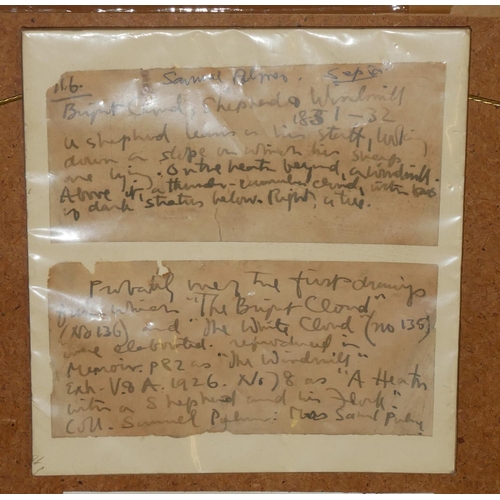 116. Samuel Palmer. Sepia
Bright Cloud, Shepherd & Windmill
1831-32
A shepherd leans on his staff, looking
down a slope on which his sheep
are lying. On the heath beyond, a windmill.
Above it, a thunder-cumulus cloud, with bars
of dark stratus below. Right, a tree.
Probably one of the first drawings
from which "The Bright Cloud"
(No 136) and "The White Cloud (no 135)
were elaborated. reproduced in
Memoir. P82 as "The Windmill"
Exh. V&A. 1926. No 78 as "A Heath
with a Shepherd and his Flock"
Coll. Samuel Palmer: Miss